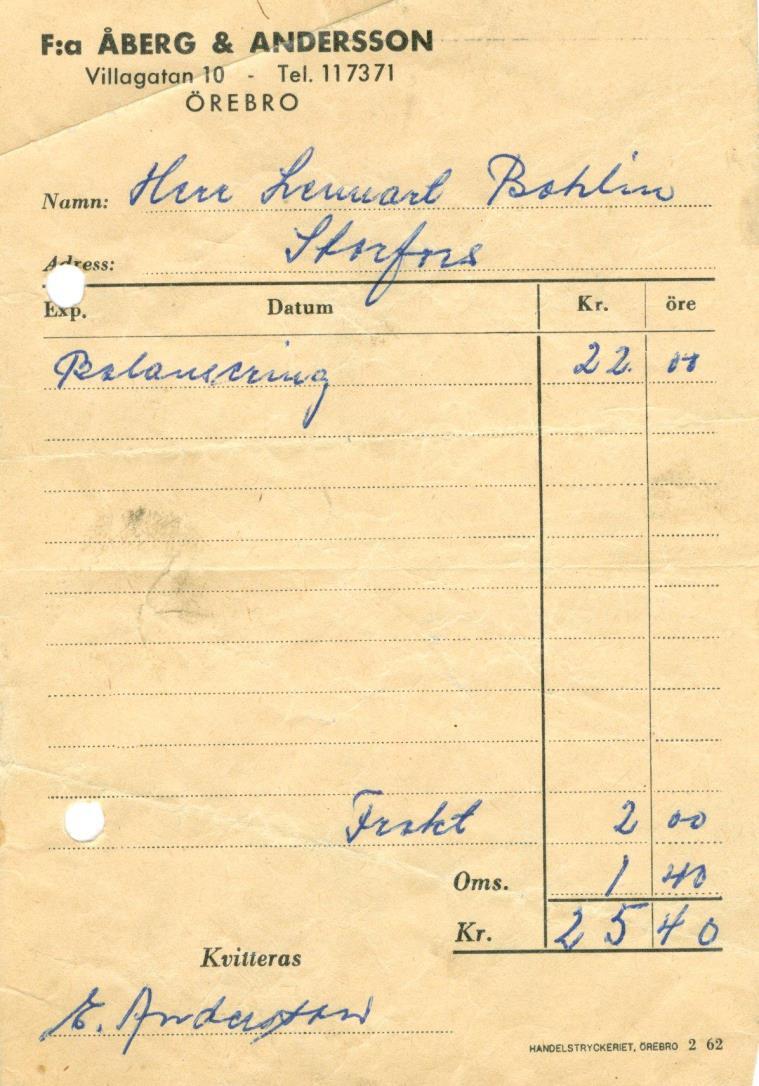 F:a ÅBERG & ANDERSSON
Villagatan 10 - Tel. 117371
ÖREBRO
Namn: Herr Lennart Bohlin
Adress: Storfors
Exp. Datum Kr. öre
Balansering 22. 00
Frakt 2 00
Oms. 1 40
Kr. 25 40
Kvitteras
E. Andersson
HANDELSTRYCKERIET, ÖREBRO 2 62